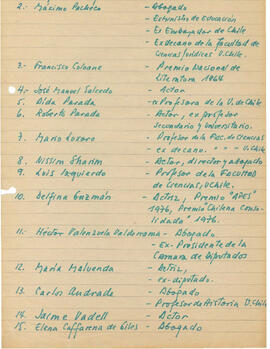 2.- Máximo Pacheco - Abogado
- Exministro de Educación
- Ex Embajador de Chile
- Ex Decano de la Facultad de Ciencias Jurídicas U. Chile.
3.- Francisco Coloane - Premio Nacional de Literatura 1964
4.- José Manuel Salcedo - Actor
5. Olda Parada - Profesora de la U. de Chile
6. Roberto Parada - Actor, ex profesor
secundario y universitario.
7. Mario Lorero - Profesor de la Fac. de Ciencias
ex decano. " " U. Chile
8. Nissim Sharim - Actor, director y abogado
9. Luis Izquierdo - Profesor de la Facultad
de Ciencias, U. Chile.
10. Delfina Guzmán - Actriz, Premio "APES"
1976, Premio Chilena Consolidada 1976.
11. - Héctor Valenzuela Valderrama - Abogado
- Ex-Presidente de la
Cámara de Diputados
12. María Maluenda - Actriz,
ex-diputado.
13. Carlos Andrade - Abogado
- Profesor de Historia U. Chile
14. Jaime Vadell - Actor
15. Elena Caffarena de Giles - Abogado